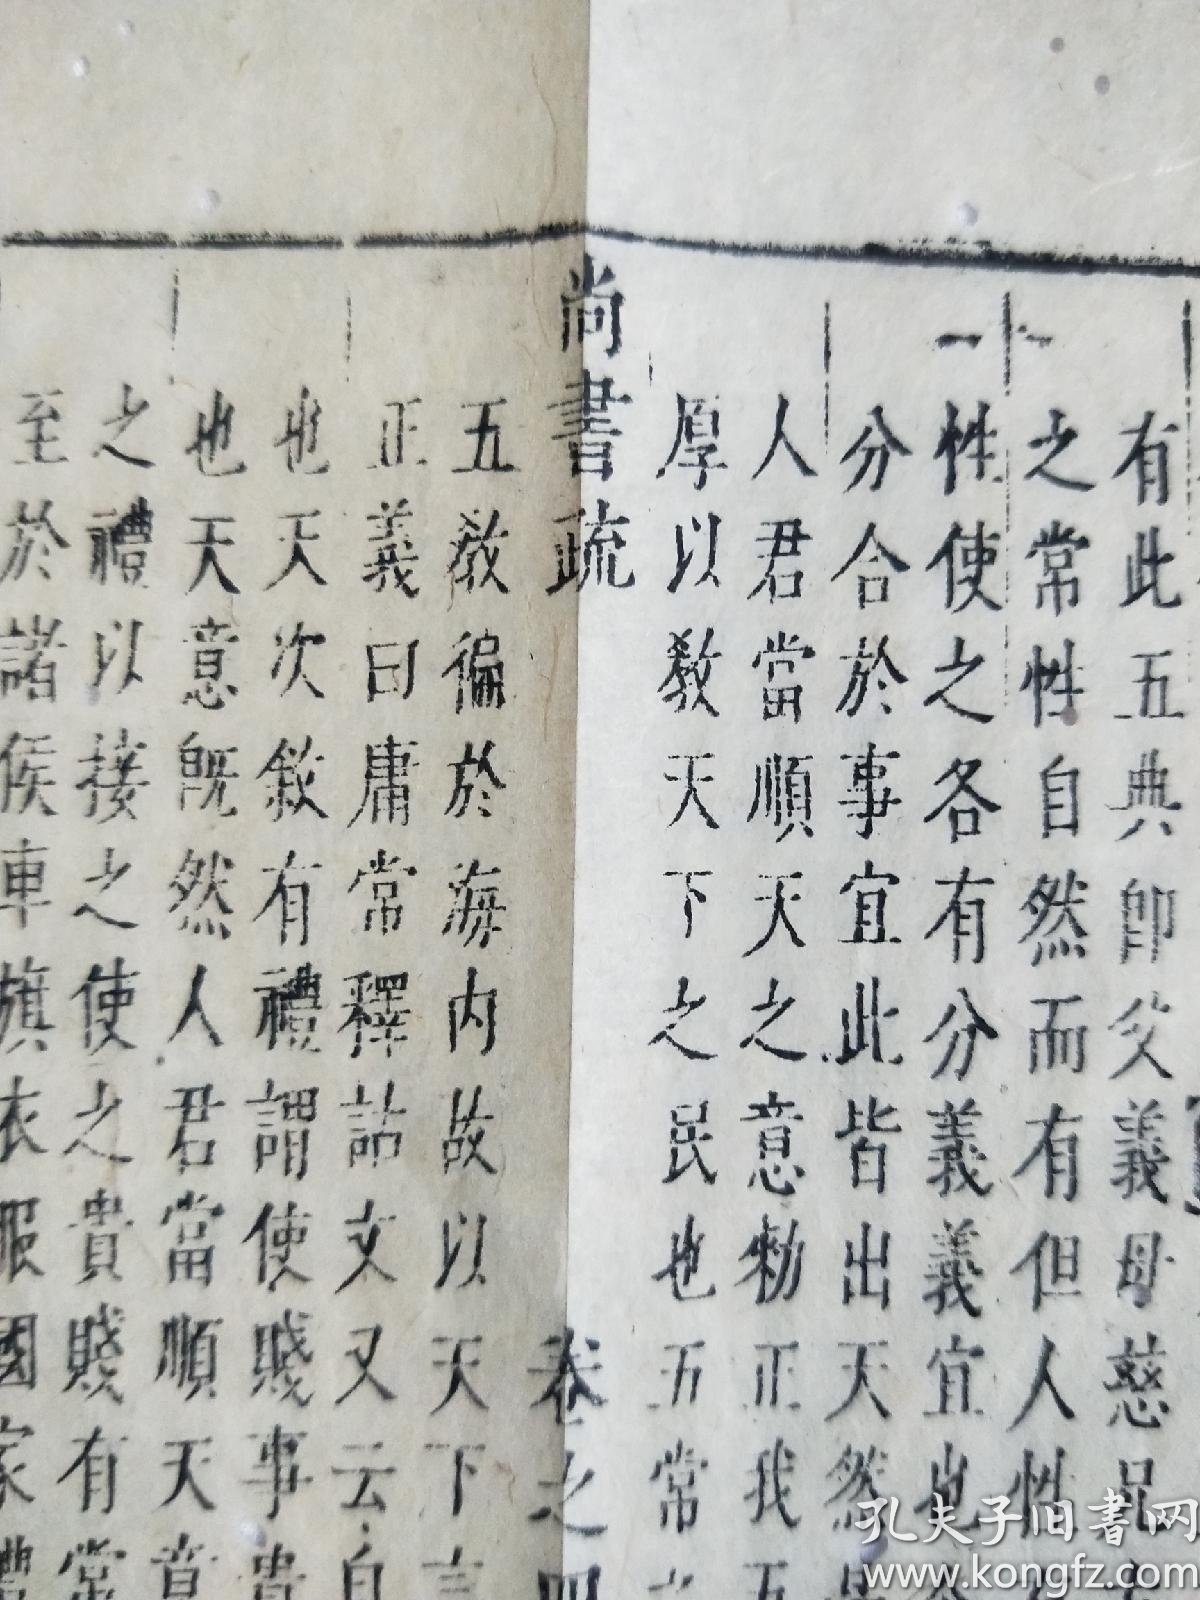 有此五典即父義母慈兄
之常性自然而有但人性
十一
性使之各有分義義宜也
分合於事宜此皆出天然
人君當順天之意勑正我五
厚以敎天下之民也五常
尚書疏 卷之四
五敎徧於海內故以天下言
正義曰庸常釋詁文又云自
也天次敘有禮謂使賤事貴
也天意既然人君當順天意
之禮以接之使之貴賤有常
至於諸侯車旗衣服國家禮
孔夫子旧书网
www.kongfz.com